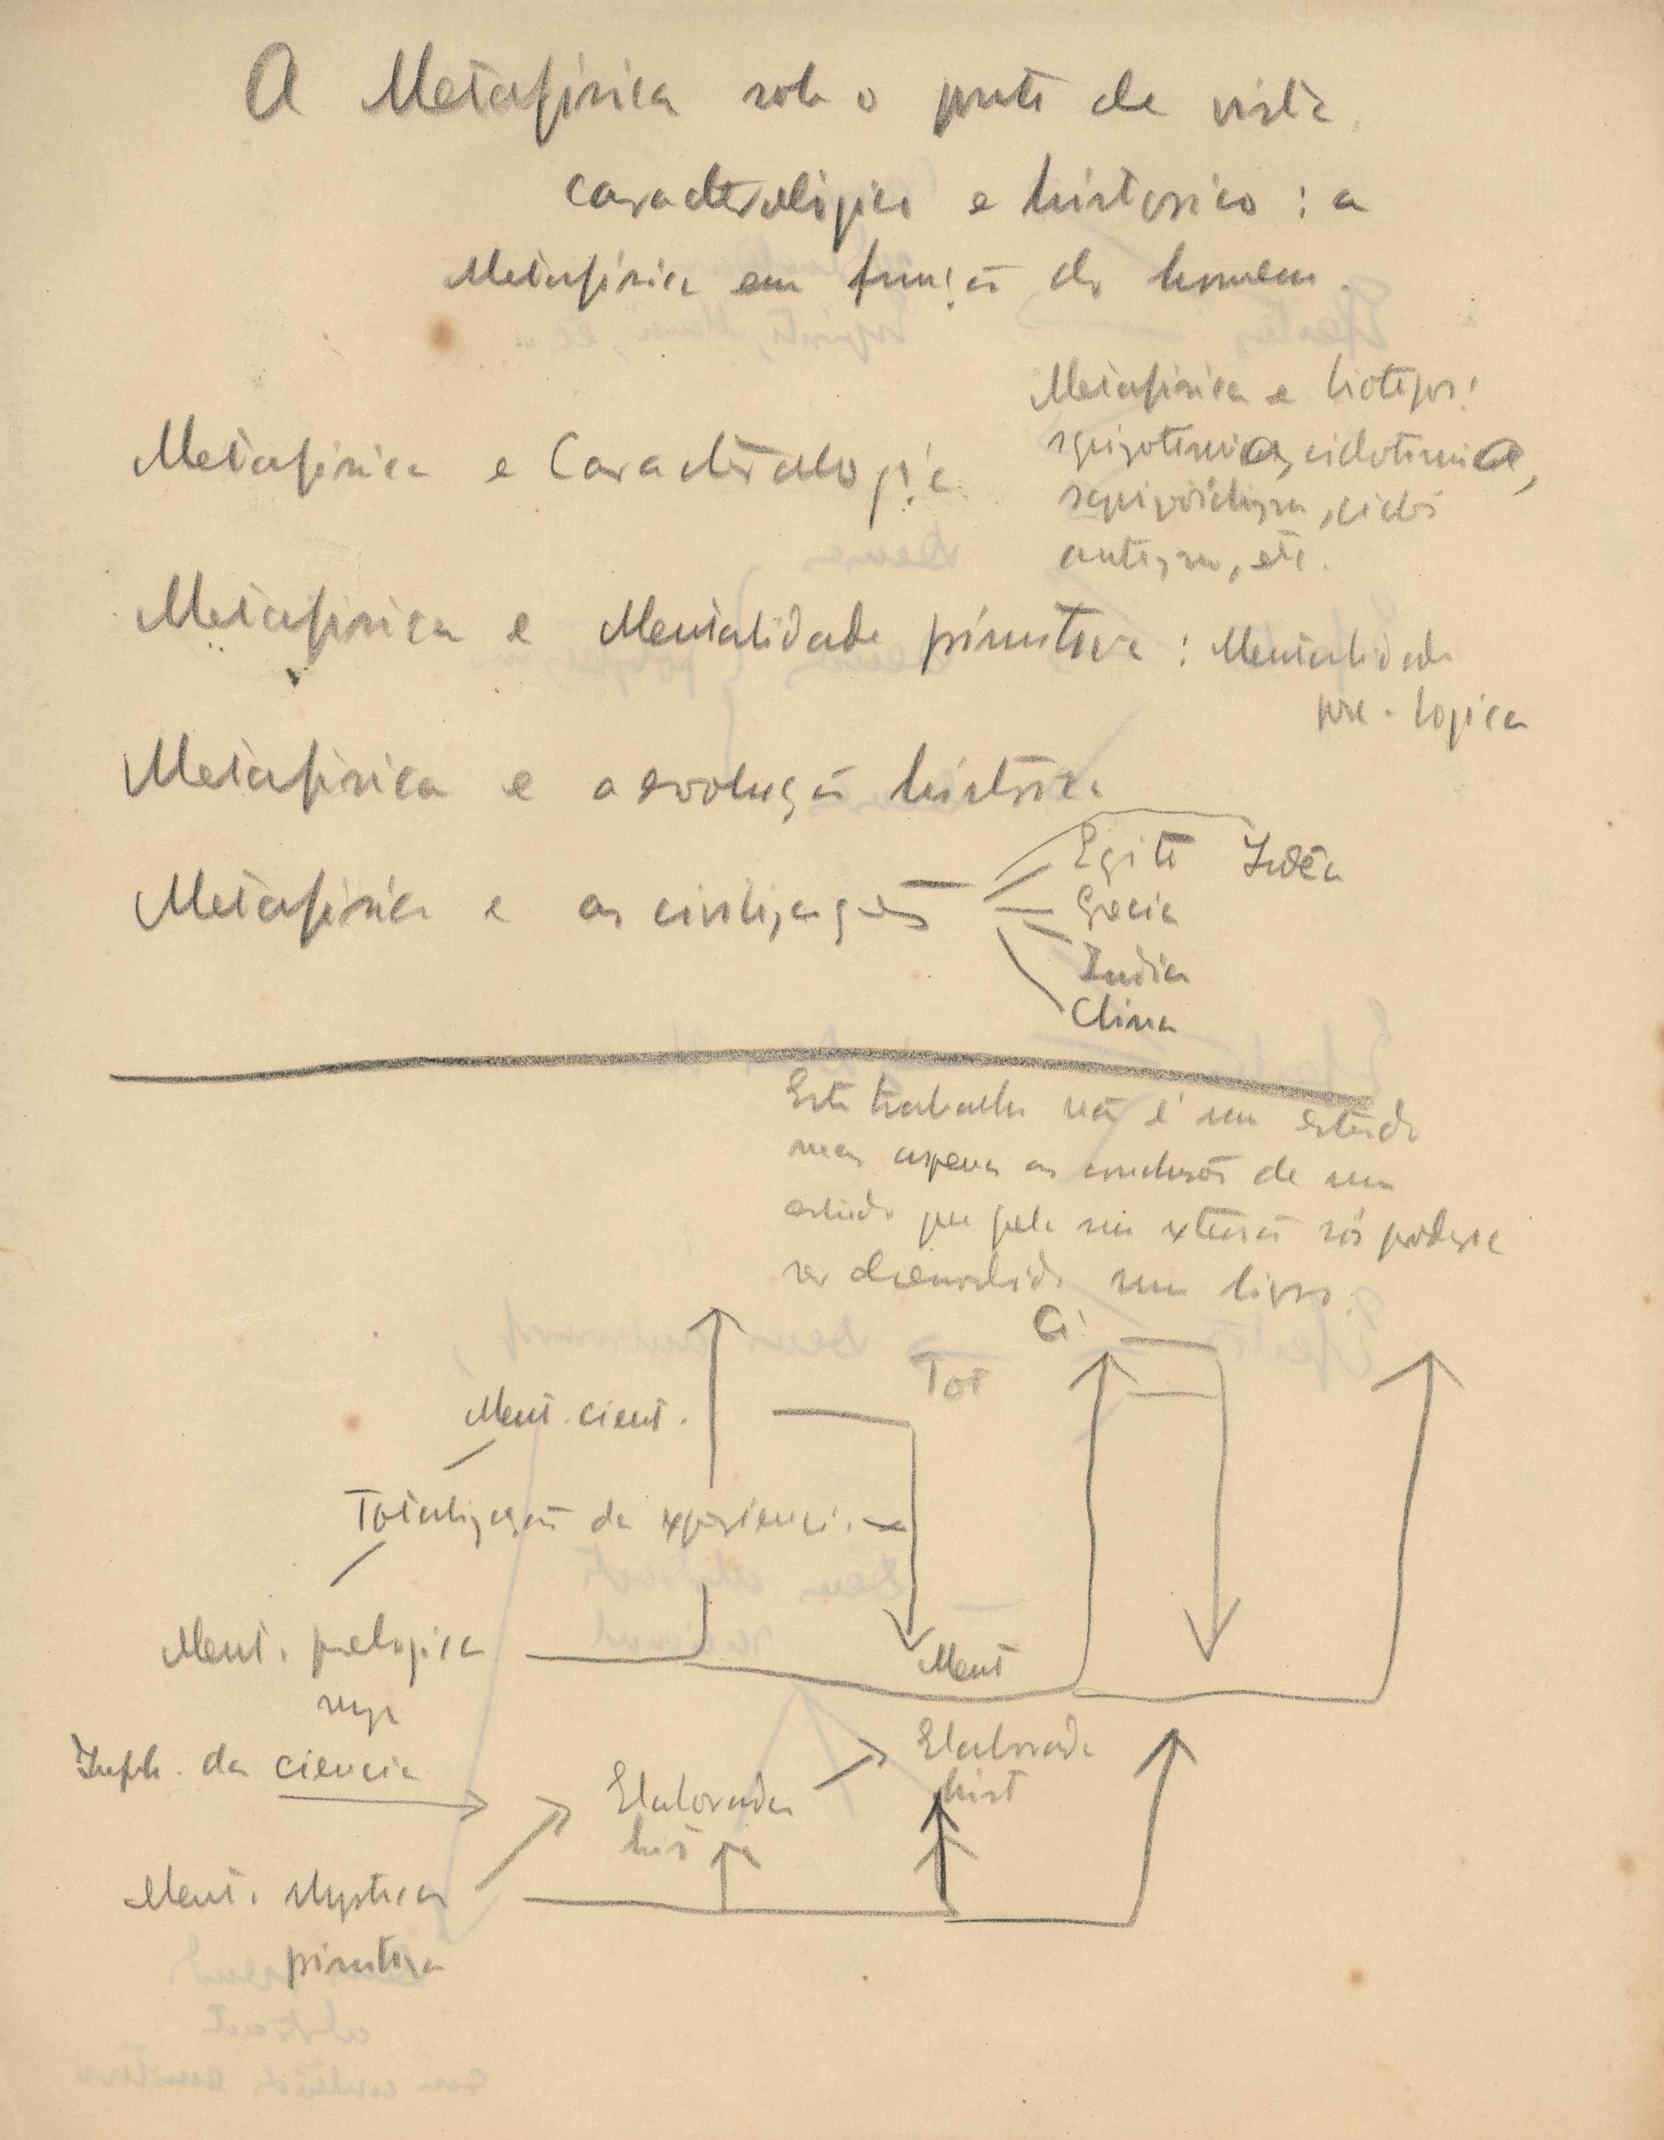 A Metafisica sob o ponto de vista
caracterologico e historico : a
Metafisica em função do homem.
Metafisica e biotipos:
Metafisica e Caracterologia
esquizotimica, ciclotimica,
antigra, etc.
Metafisica e Mentalidade primitiva : Mentalidade
pre-logica
Metafisica e a evolução historica
Metafisica e as civilizações
Egito Judéa
Grecia
India
China
Este trabalho não é um estudo
mas apenas as conclusões de um
estudo que pela sua extensão só poderia
ser desenvolvido num livro.
Ci
Tot
Ment. cient.
Totalização da experiencia
Ment. prelogica
Ment
Infl. da ciencia
Elaborada
hist
Elaborada
his
Ment. Mystica
primitiva